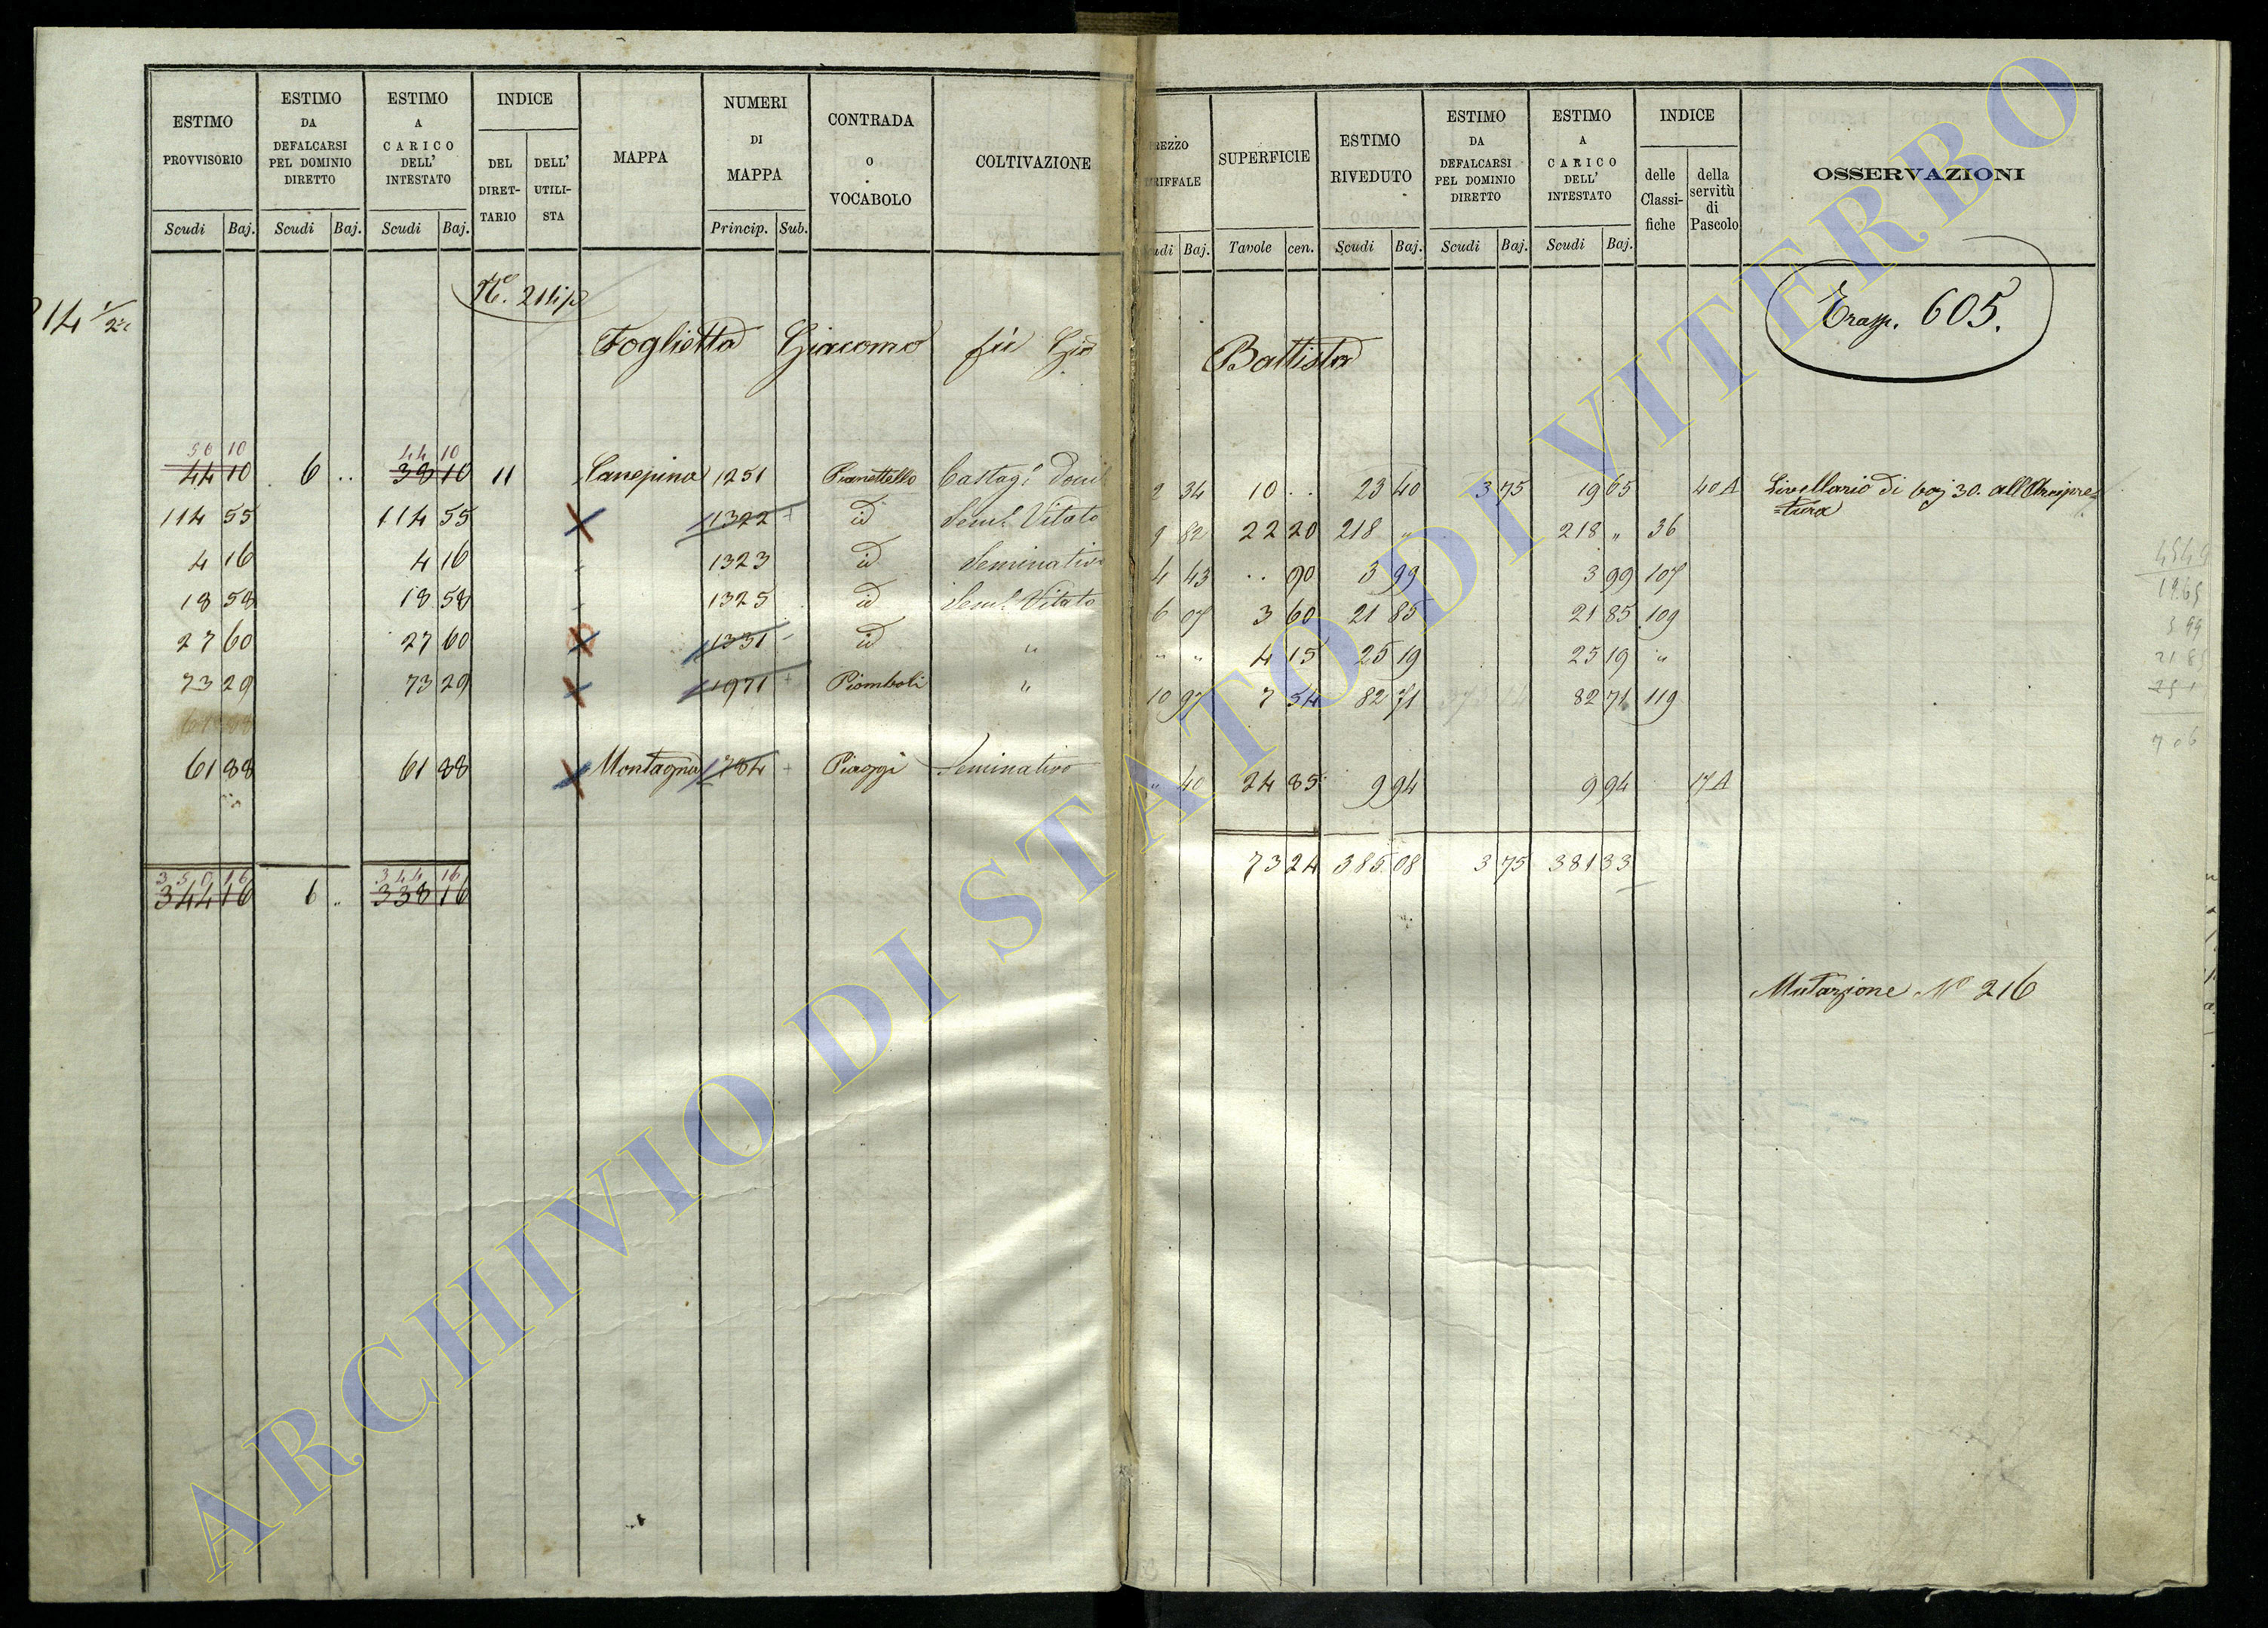 ESTIMO PROVVISORIO Scudi Baj.
ESTIMO DA DEFALCARSI PEL DOMINIO DIRETTO Scudi Baj.
ESTIMO A CARICO DELL' INTESTATO Scudi Baj.
INDICE
DEL DIRET-TARIO
DELL' UTILI-STA
MAPPA
NUMERI DI MAPPA Princip. Sub.
CONTRADA o VOCABOLO
COLTIVAZIONE
SUPERFICIE Tavole cen.
ESTIMO RIVEDUTO Scudi Baj.
ESTIMO DA DEFALCARSI PEL DOMINIO DIRETTO Scudi Baj.
ESTIMO A CARICO DELL' INTESTATO Scudi Baj.
INDICE
delle Classi-fiche
della servitù di Pascolo
OSSERVAZIONI
Trasp. 605.
Foglietta Giacomo fu Gio Battista
50 10 44 10
44 10 6 .. 38 10 11 Canepina 1251 Pianettello 2 34 10 .. 23 40 3 75 19 65 40 A Livellario di baj 30. all'Arcipre=
=tura
114 55 114 55 1322 id Seml. Vitato 9 82 22 20 218 „ 218 „ 36
4 16 4 16 1323 id Seminativo 4 43 .. 90 3 99 3 99 107
18 58 18 58 1325 id Seml. Vitato 6 07 3 60 21 85 21 85 109
27 60 27 60 1331 id „ „ „ 4 15 25 19 25 19 „
73 29 73 29 1971 Piomboli „ 10 97 7 54 82 71 82 71 119
61 88 61 88 Montagna 1784 Piaggi Seminativo „ 40 24 85 9 94 9 94 17 A
350 16 344 16
344 16 6 „ 338 16 73 24 385 08 3 75 381 33
Mutazione N° 216
ARCHIVIO DI STATO DI VITERBO